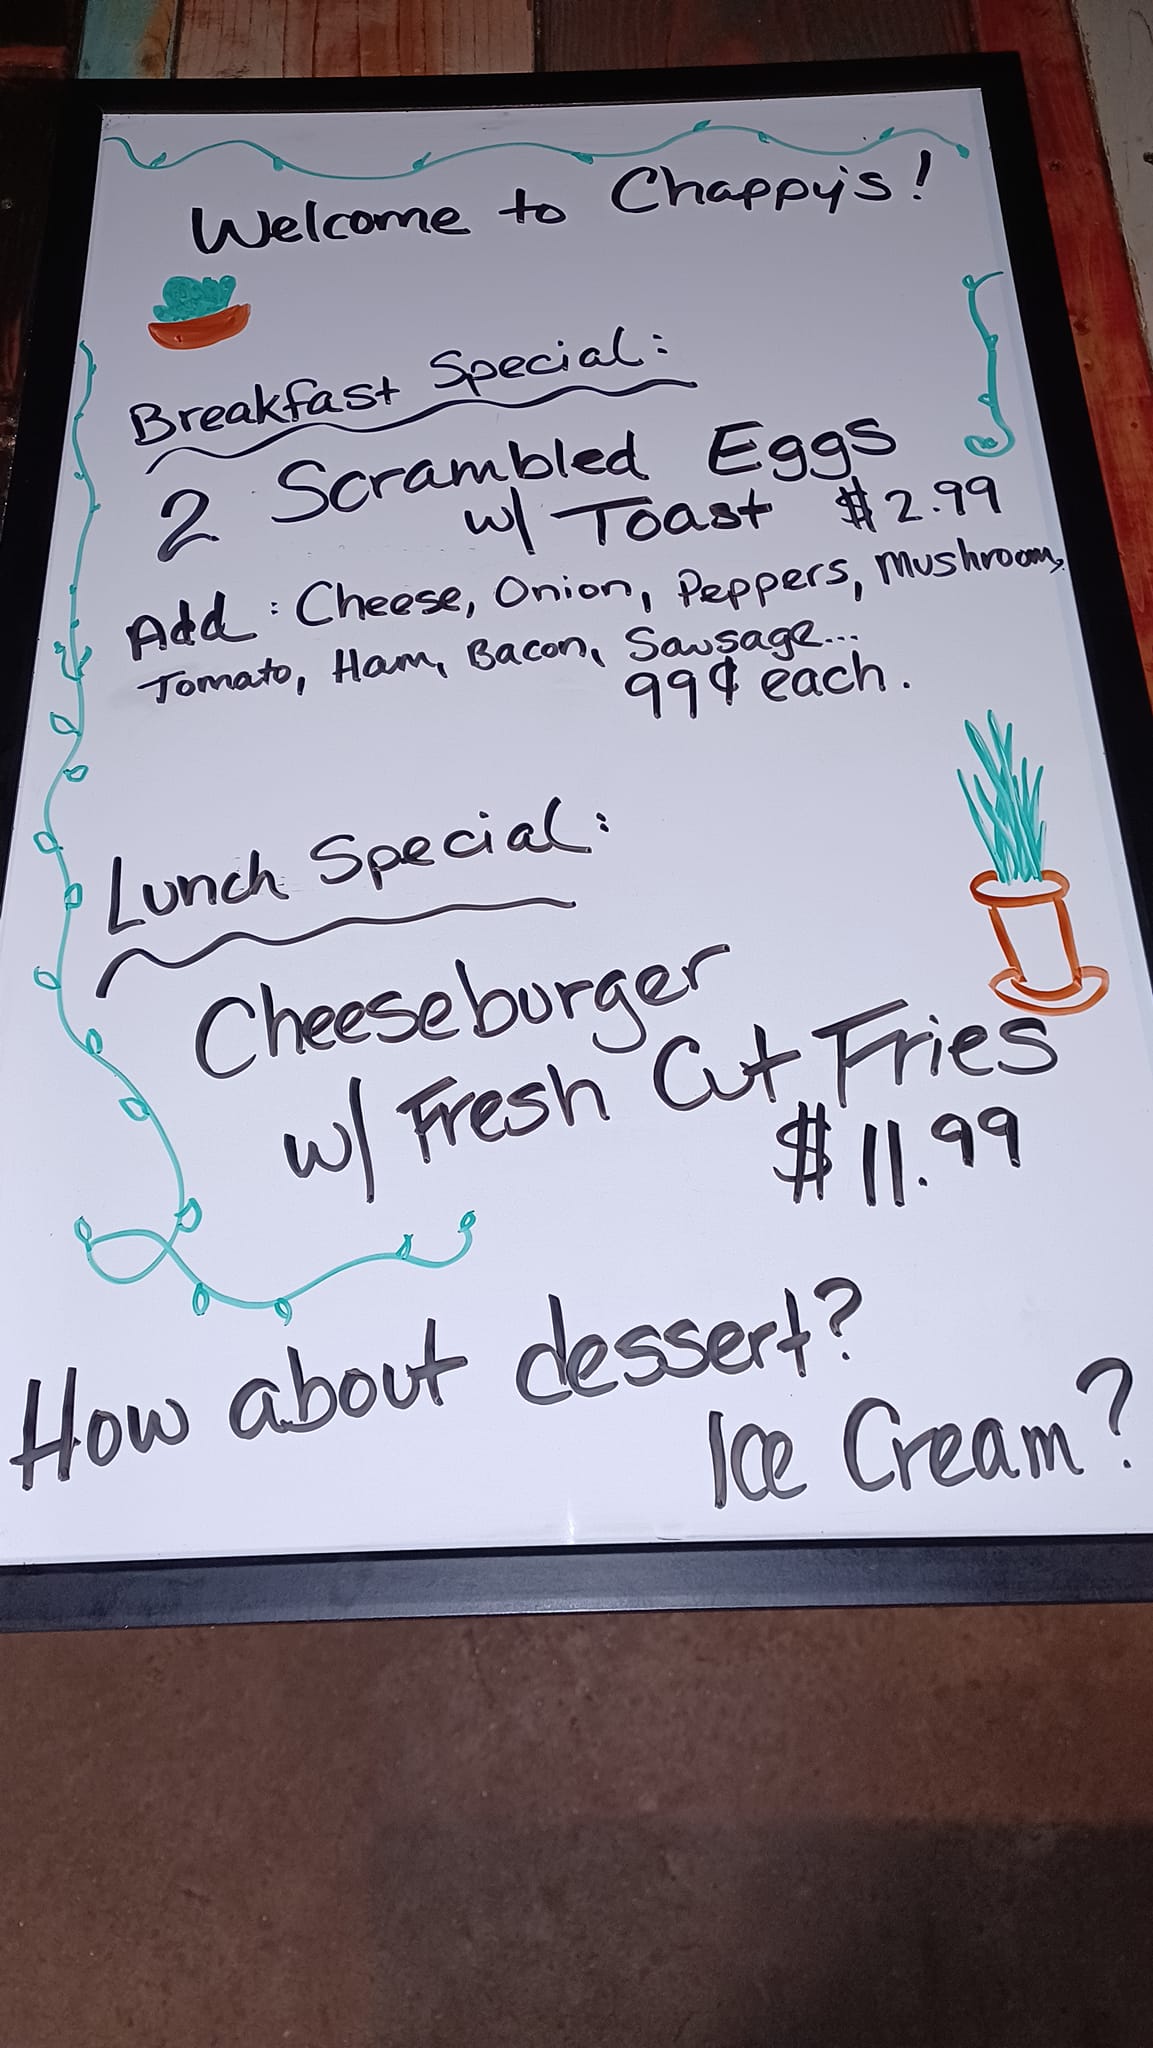 Welcome to Chappy's!
Breakfast Special:
2 Scrambled Eggs
w/ Toast $2.99
Add: Cheese, Onion, Peppers, Mushroom,
Tomato, Ham, Bacon, Sausage...
99¢ each.
Lunch Special:
Cheeseburger
w/ Fresh Cut Fries
$11.99
How about dessert?
Ice Cream?